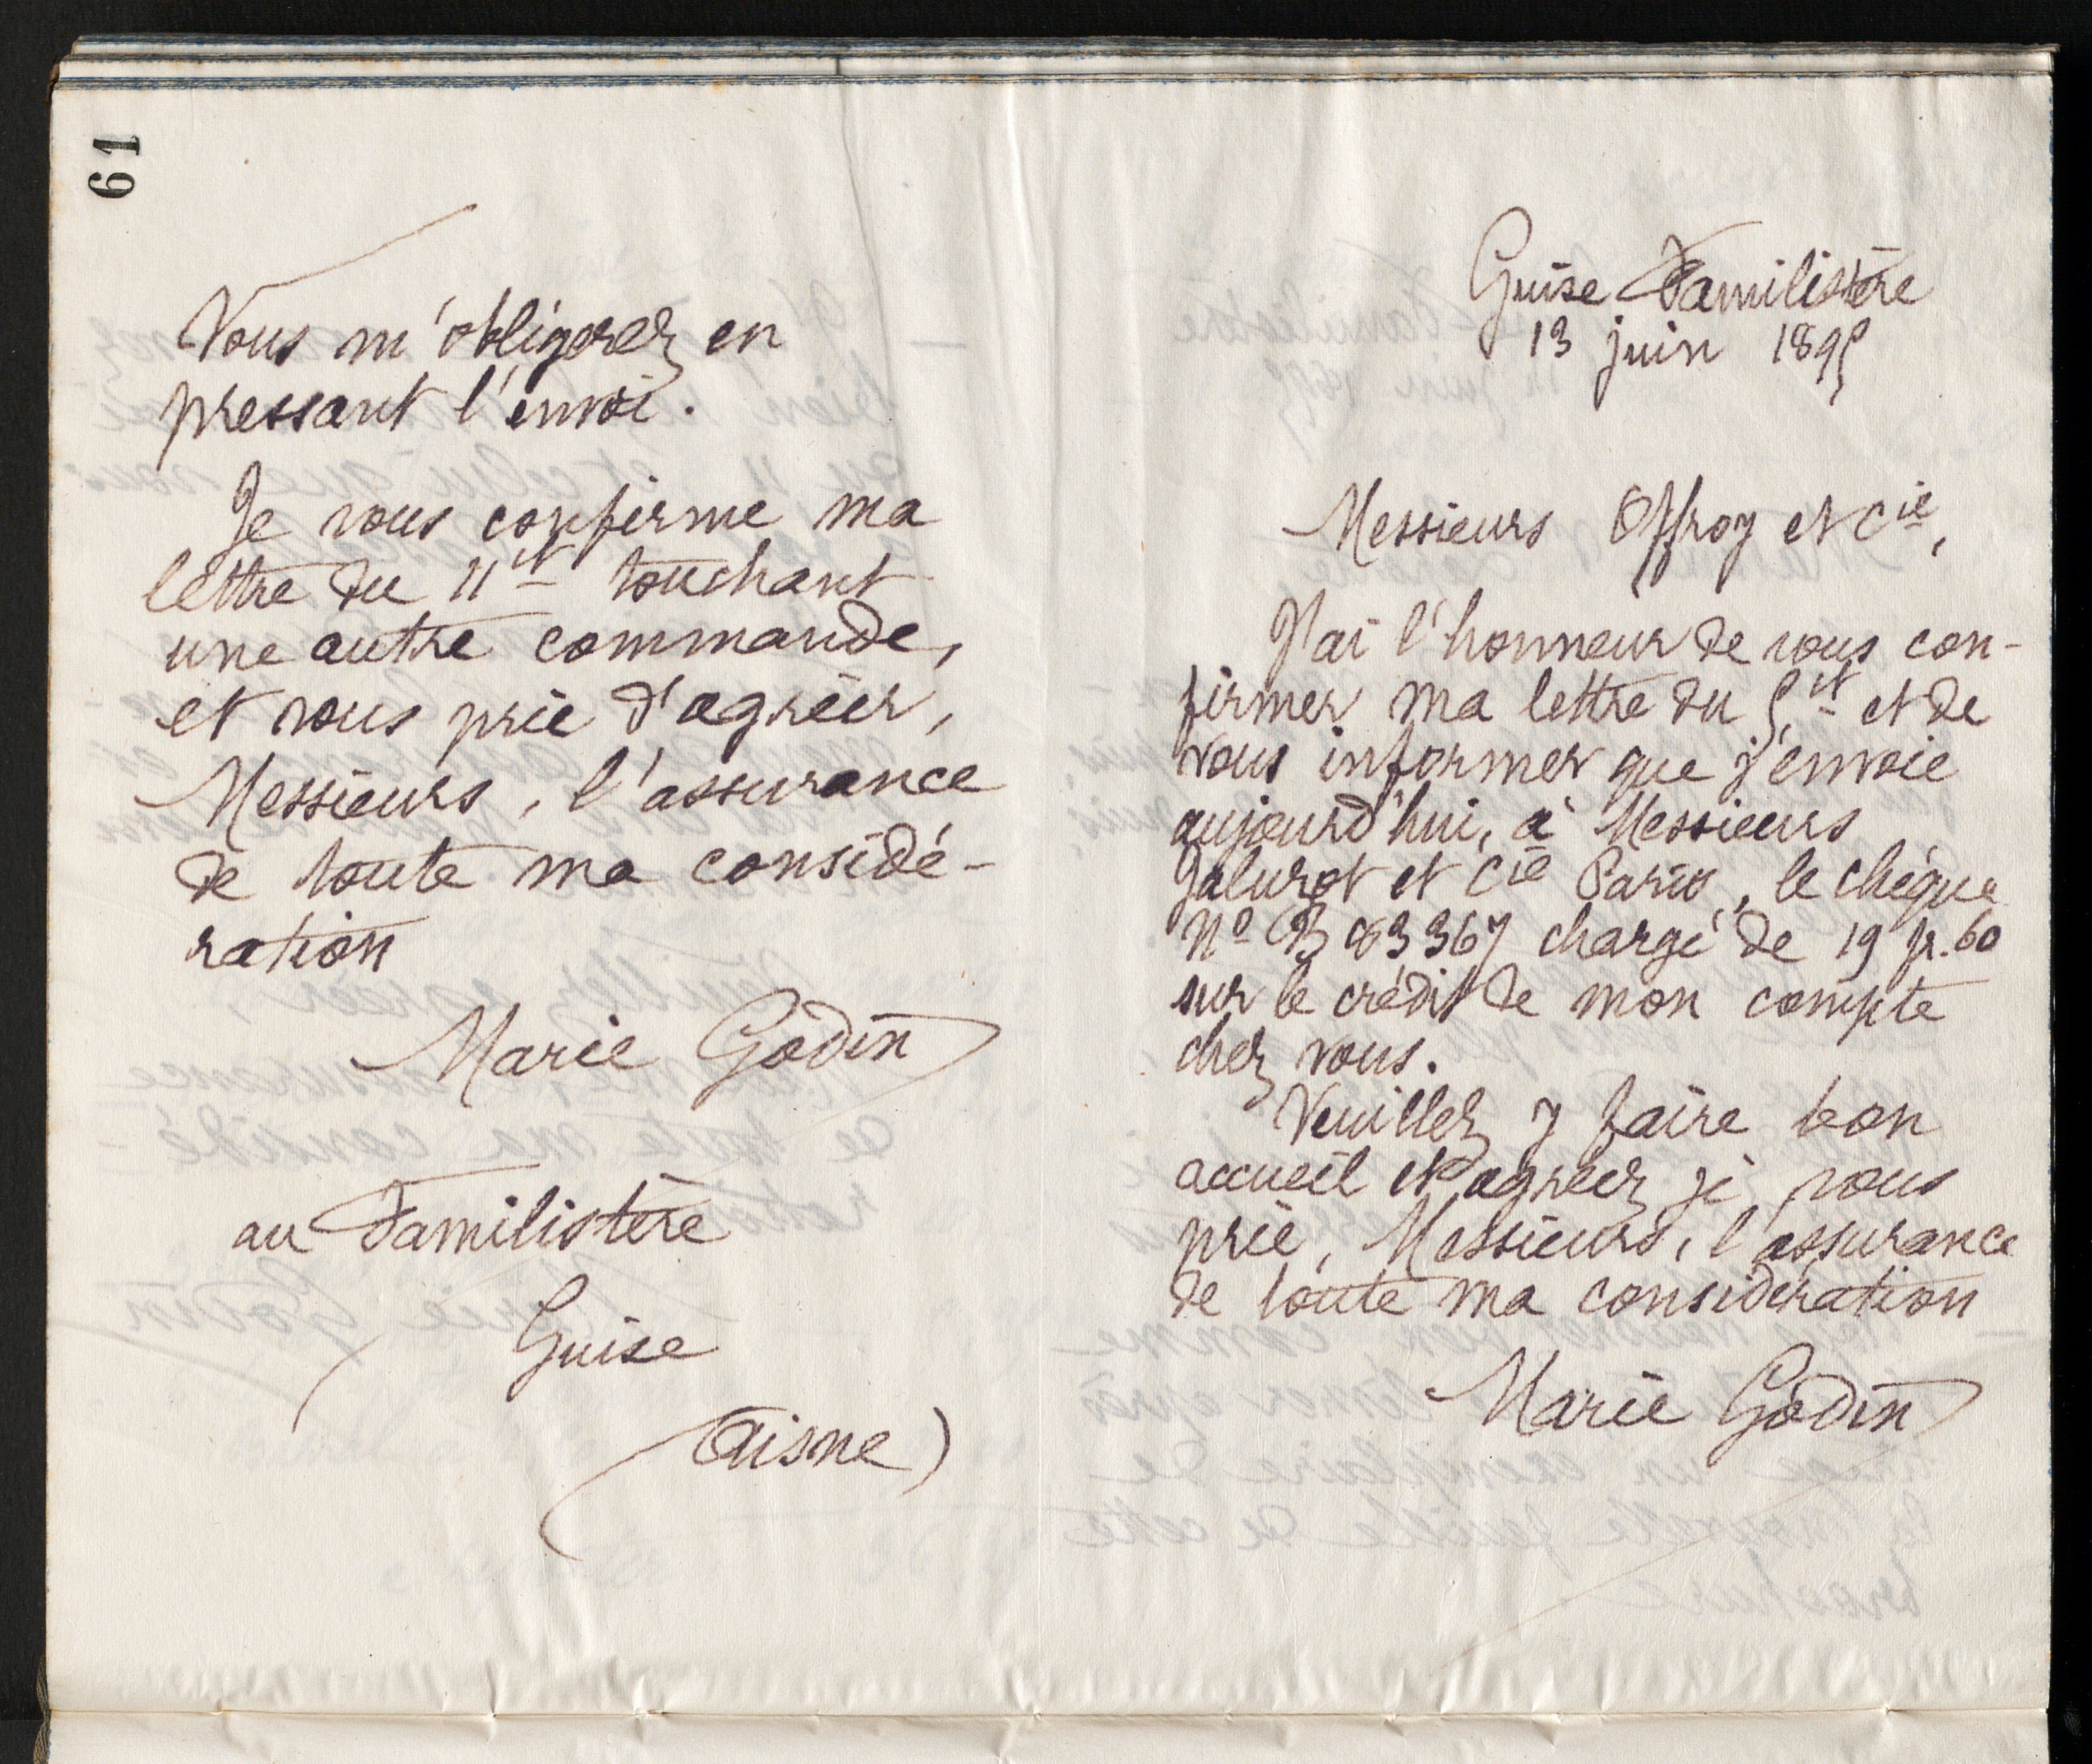 61
Vous m'obligerez en
pressant l'envoi.
Je vous confirme ma
lettre du 11 ct touchant
une autre commande,
et vous prie d'agréer,
Messieurs, l'assurance
de toute ma considé-
ration
Marie Godin
au Familistère
Guise
(Aisne)
Guise Familistère
13 juin 1895
Messieurs Offroy et Cie,
J'ai l'honneur de vous con-
firmer ma lettre du 5 ct et de
vous informer que j'envoie
aujourd'hui, à Messieurs
Jaluzot et Cie Paris, le chèque
No B 83367 chargé de 19 fr. 60
sur le crédit de mon compte
chez vous.
Veuillez y faire bon
accueil et agréez je vous
prie, Messieurs, l'assurance
de toute ma considération
Marie Godin